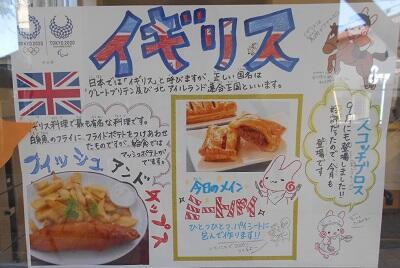 TOKYO 2020
TOKYO 2020
イギリス
日本では「イギリス」と呼びますが、正しい国名は
グレートブリテン及び北アイルランド連合王国といいます。
イギリス料理で最も有名な料理です。
白身魚のフライに、フライドポテトをつけあわせ
たものですが、給食では
フィッシュ
アンド
チップス
今日のメイン
ミートパイ
ひとつひとつ、パイシートに
包んで作ります!!
スコッチブロス
9月にも登場しました!!
好評だったので、今月も
登場です